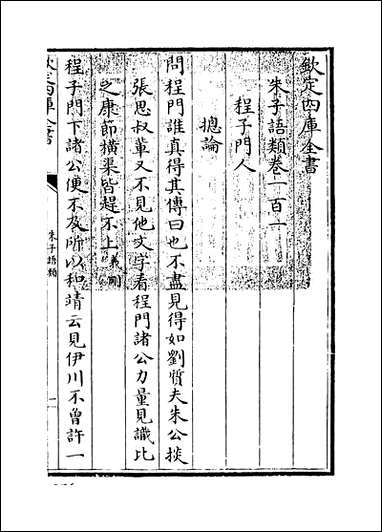 欽定四庫全書
朱子語類卷一百一
程子門人
總論
問程門誰真得其傳曰也不盡見得如劉質夫朱公掞
張思叔輩又不見他文字看程門諸公力量見識比
之康節橫渠皆趕不上義剛
程子門下諸公便不及所以和靖云見伊川不曾許一
欽定四庫全書
朱子語類
一